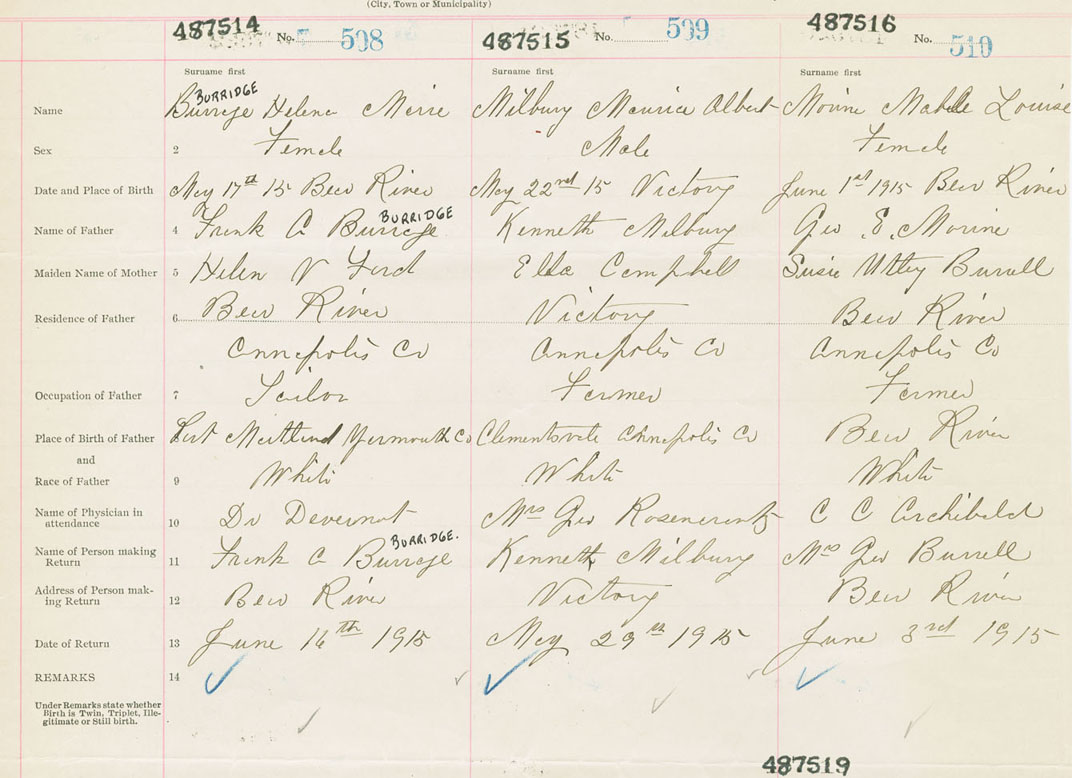 (City, Town or Municipality)
487514 No. 508 487515 No. 509 487516 No. 510
Surname first Surname first Surname first
BURRIDGE
Name Burrege Helena Merie Milbury Maurice Albert Morine Mabelle Louise
Sex 2 Female Male Female
Date and Place of Birth May 17th 15 Bear River May 22nd 15 Victory June 1st 1915 Bear River
BURRIDGE
Name of Father 4 Frank A Burrege Kenneth Milbury Geo. E. Morine
Maiden Name of Mother 5 Helen V Ford Ella Campbell Susie Utley Burrell
Residence of Father 6 Bear River Victory Bear River
Annapolis Co Annapolis Co Annapolis Co
Occupation of Father 7 Farmer Farmer
Place of Birth of Father Port Maitland Yarmouth Co Clementsvale Annapolis Co Bear River
and
Race of Father 9 White White White
Name of Physician in
attendance 10 Dr Devernet Mrs Geo C C Archibald
BURRIDGE.
Name of Person making
Return 11 Frank A Burrege Kenneth Milbury Mrs Geo Burrell
Address of Person mak-
ing Return 12 Bear River Victory Bear River
Date of Return 13 June 16th 1915 May 29th 1915 June 3rd 1915
REMARKS 14
Under Remarks state whether
Birth is Twin, Triplet, Ille-
gitimate or Still birth.
487519